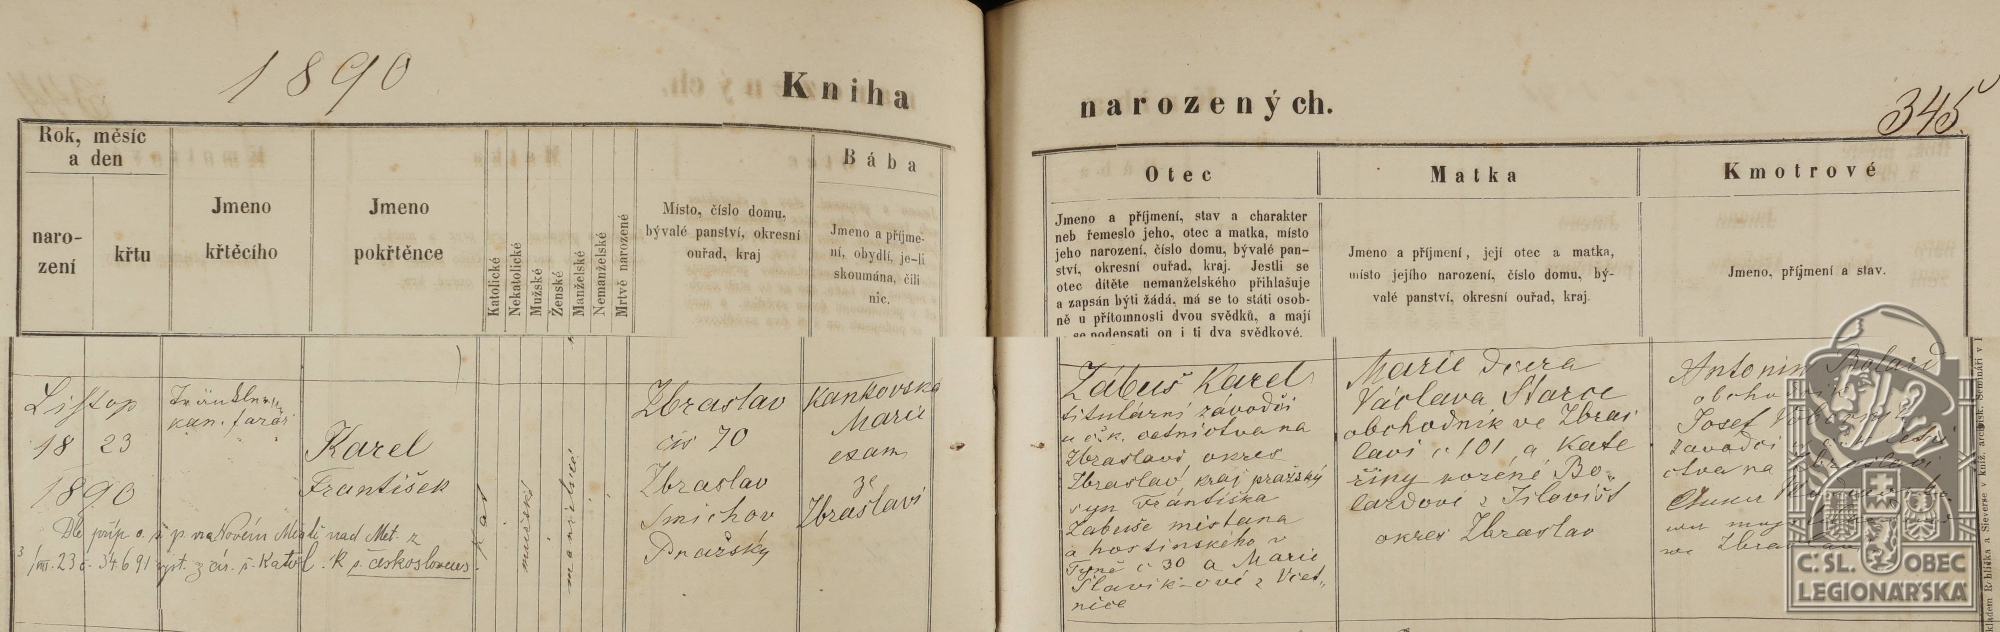 1890
Kniha
narozených.
345.
Rok, měsíc
a den
naro-
zení
křtu
Jmeno
křtěcího
Jmeno
pokřtěnce
Katolické
Nekatolické
Mužské
Ženské
Manželské
Nemanželské
Mrtvě narozené
Místo, číslo domu,
bývalé panství, okresní
ouřad, kraj
Bába
Jmeno a příjme-
ní, obydlí, je-li
skoumána, čili
nic.
Otec
Jmeno a příjmení, stav a charakter
neb řemeslo jeho, otec a matka, místo
jeho narození, číslo domu, bývalé pan-
ství, okresní ouřad, kraj. Jestli se
otec dítěte nemanželského přihlašuje
a zapsán býti žádá, má se to státi osob-
ně u přítomnosti dvou svědků, a mají
se podepsati on i ti dva svědkové.
Matka
Jmeno a příjmení, její otec a matka,
místo jejího narození, číslo domu, bý-
valé panství, okresní ouřad, kraj.
Kmotrové
Jmeno, příjmení a stav.
Listop
18 23
1890
kan. farář
Karel
František
kat
mužské
manželské
Zbraslav
čís 70
Zbraslav
Smíchov
Pražský
Kankovská
Marie
exam
ze
Zbraslavi
Zábuš Karel
titulární závodčí
u c. k. četnictva na
Zbraslavi okres
Zbraslav, kraj pražský
syn Františka
Zábuše měšťana
a hostinského v
Týně č 30 a Marie
Slavík-ové z Včel-
nice
Marie dcera
Václava Starce
obchodník ve Zbras
lavi č 101 a Kate
řiny rozené Bo-
lardové z Jílovišť
okres Zbraslav
Antonín Bolard
obchodník
Josef
závodčí
ctva na Zbraslavi
Anna
ve Zbraslavi
Dle příp o. š p. na Novém Městě nad Met. z
3/VII. 23 č. 34.691 vyst. z cír. ř. Katol. k čs. československ.
Č: SL. OBEC
LEGIONÁŘSKÁ